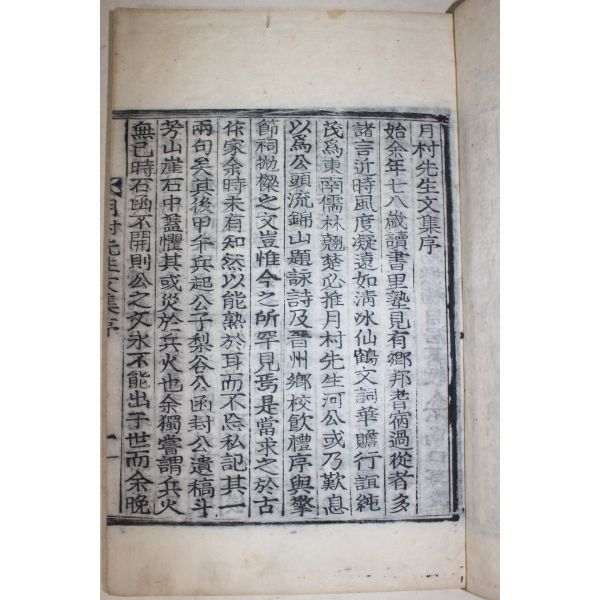 月村先生文集序
始余年七八歲讀書里塾見有鄉邦耆宿過從者多
諸言近時風度凝遠如淸氷仙鶴文詞華贍行誼純
茂爲東南儒林翹楚必推月村先生河公或乃歎息
以爲公頭流錦山題詠詩及晉州鄉校飮禮序與擎
節祠抛樑之文豈惟今之所罕見焉是當求之於古
作家余時未有知然以能熟於耳而不忘私記其一
兩句矣其後甲午兵起公子梨谷公函封公遺稿斗
芳山崖石中蓋懼其或災於兵火也余獨嘗謂兵火
無已時石函不開則公之文永不能出于世而余晚
月村先生文集序
一